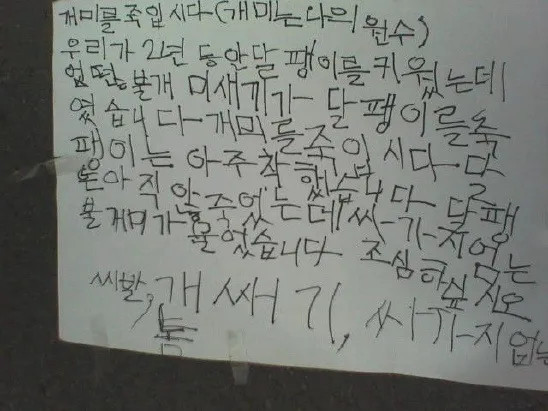 개미를죽입시다(개미는나의 원수)
우리가 2년 동안달팽이를키웠는데
불개 미새기가- 달팽이를죽
였습니다-개미를죽입시다. 달
팽이는 아주착했습니다 달팽
아직 안죽었는데 싸-가-지없는
불개미가물었습니다 조심하싶시오
씨빨, 개 쌔 기, 싸가-지 없는
놈